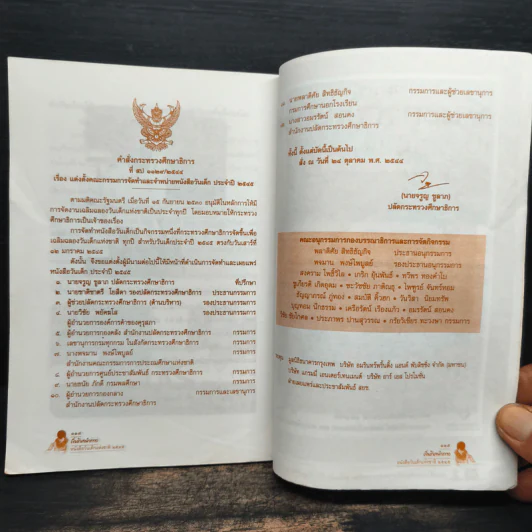 คำสั่งกระทรวงศึกษาธิการ
ที่ สป ๑๑๒๙/๒๕๔๔
เรื่อง แต่งตั้งคณะกรรมการจัดทำและจำหน่ายหนังสือวันเด็ก ประจำปี ๒๕๔๕
ตามมติคณะรัฐมนตรี เมื่อวันที่ ๑๕ กันยายน ๒๕๓๐ อนุมัติในหลักการให้มี
การจัดงานเฉลิมฉลองวันเด็กแห่งชาติเป็นประจำทุกปี โดยมอบหมายให้กระทรวง
ศึกษาธิการเป็นเจ้าของเรื่อง
การจัดทำหนังสือวันเด็กเป็นกิจกรรมหนึ่งที่กระทรวงศึกษาธิการจัดขึ้นเพื่อ
เฉลิมฉลองวันเด็กแห่งชาติ ทุกปี สำหรับวันเด็กประจำปี ๒๕๔๕ ตรงกับวันเสาร์ที่
๑๒ มกราคม ๒๕๔๕
ดังนั้น จึงขอแต่งตั้งผู้มีนามต่อไปนี้ให้มีหน้าที่ดำเนินการจัดทำและเผยแพร่
หนังสือวันเด็กประจำปี ๒๕๔๕
๑. นายจรูญ ชูลาภ ปลัดกระทรวงศึกษาธิการ ที่ปรึกษา
๒. ประธานกรรมการ
๓. ผู้ช่วยปลัดกระทรวงศึกษาธิการ (ด้านบริหาร) รองประธานกรรมการ
๔. นายวิชัย พยัคฆโส รองประธานกรรมการ
ผู้อำนวยการองค์การค้าของคุรุสภา
๕. ผู้อำนวยการกองคลัง สำนักงานปลัดกระทรวงศึกษาธิการ กรรมการ
๖. เลขานุการกรม ในสังกัดกระทรวงศึกษาธิการ กรรมการ
๗. นางพจมาน พงษ์ไพบูลย์ กรรมการ
สำนักงานคณะกรรมการการประถมศึกษาแห่งชาติ
๘. ผู้อำนวยการศูนย์ประชาสัมพันธ์ กระทรวงศึกษาธิการ กรรมการ
๙. กรมพลศึกษา กรรมการ
๑๐. ผู้อำนวยการกองกลาง กรรมการและเลขานุการ
สำนักงานปลัดกระทรวงศึกษาธิการ
สิทธิธัญกิจ กรรมการและผู้ช่วยเลขานุการ
กรมการศึกษานอกโรงเรียน
สอนคง กรรมการและผู้ช่วยเลขานุการ
สำนักงานปลัดกระทรวงศึกษาธิการ
ทั้งนี้ ตั้งแต่บัดนี้เป็นต้นไป
สั่ง ณ วันที่ ๒๔ ตุลาคม พ.ศ. ๒๕๔๔
(นายจรูญ ชูลาภ)
ปลัดกระทรวงศึกษาธิการ
คณะอนุกรรมการกองบรรณาธิการและการจัดกิจกรรม
พลาดิศัย สิทธิธัญกิจ ประธานอนุกรรมการ
พจมาน พงษ์ไพบูลย์ รองประธานอนุกรรมการ
สงคราม โพธิ์วิไล • เกริก ยุ้นพันธ์ • ทวีพร ทองคำใบ
ชูเกียรติ เกิดอุดม • ชะวัชชัย ภาติณธุ • ไพฑูรย์ จันทร์หอม
ธัญญาภรณ์ ภู่ทอง • สมบัติ คิ้วฮก • วันวิสา นิยมทรัพย์
บุญจอม นิกธรรม • เตรียรัตน์ เรืองแก้ว • อมรรัตน์ สอนคง
• ประภาพร ปานสุวรรณ • กรรมการ
มูลนิธิธนาคารกรุงเทพ บริษัท อมรินทร์พริ้นติ้ง แอนด์ พับลิชชิ่ง จำกัด (มหาชน)
บริษัท แกรมมี่ เอนเตอร์เทนเมนท์ บริษัท อาร์ เอส โปรโมชั่น